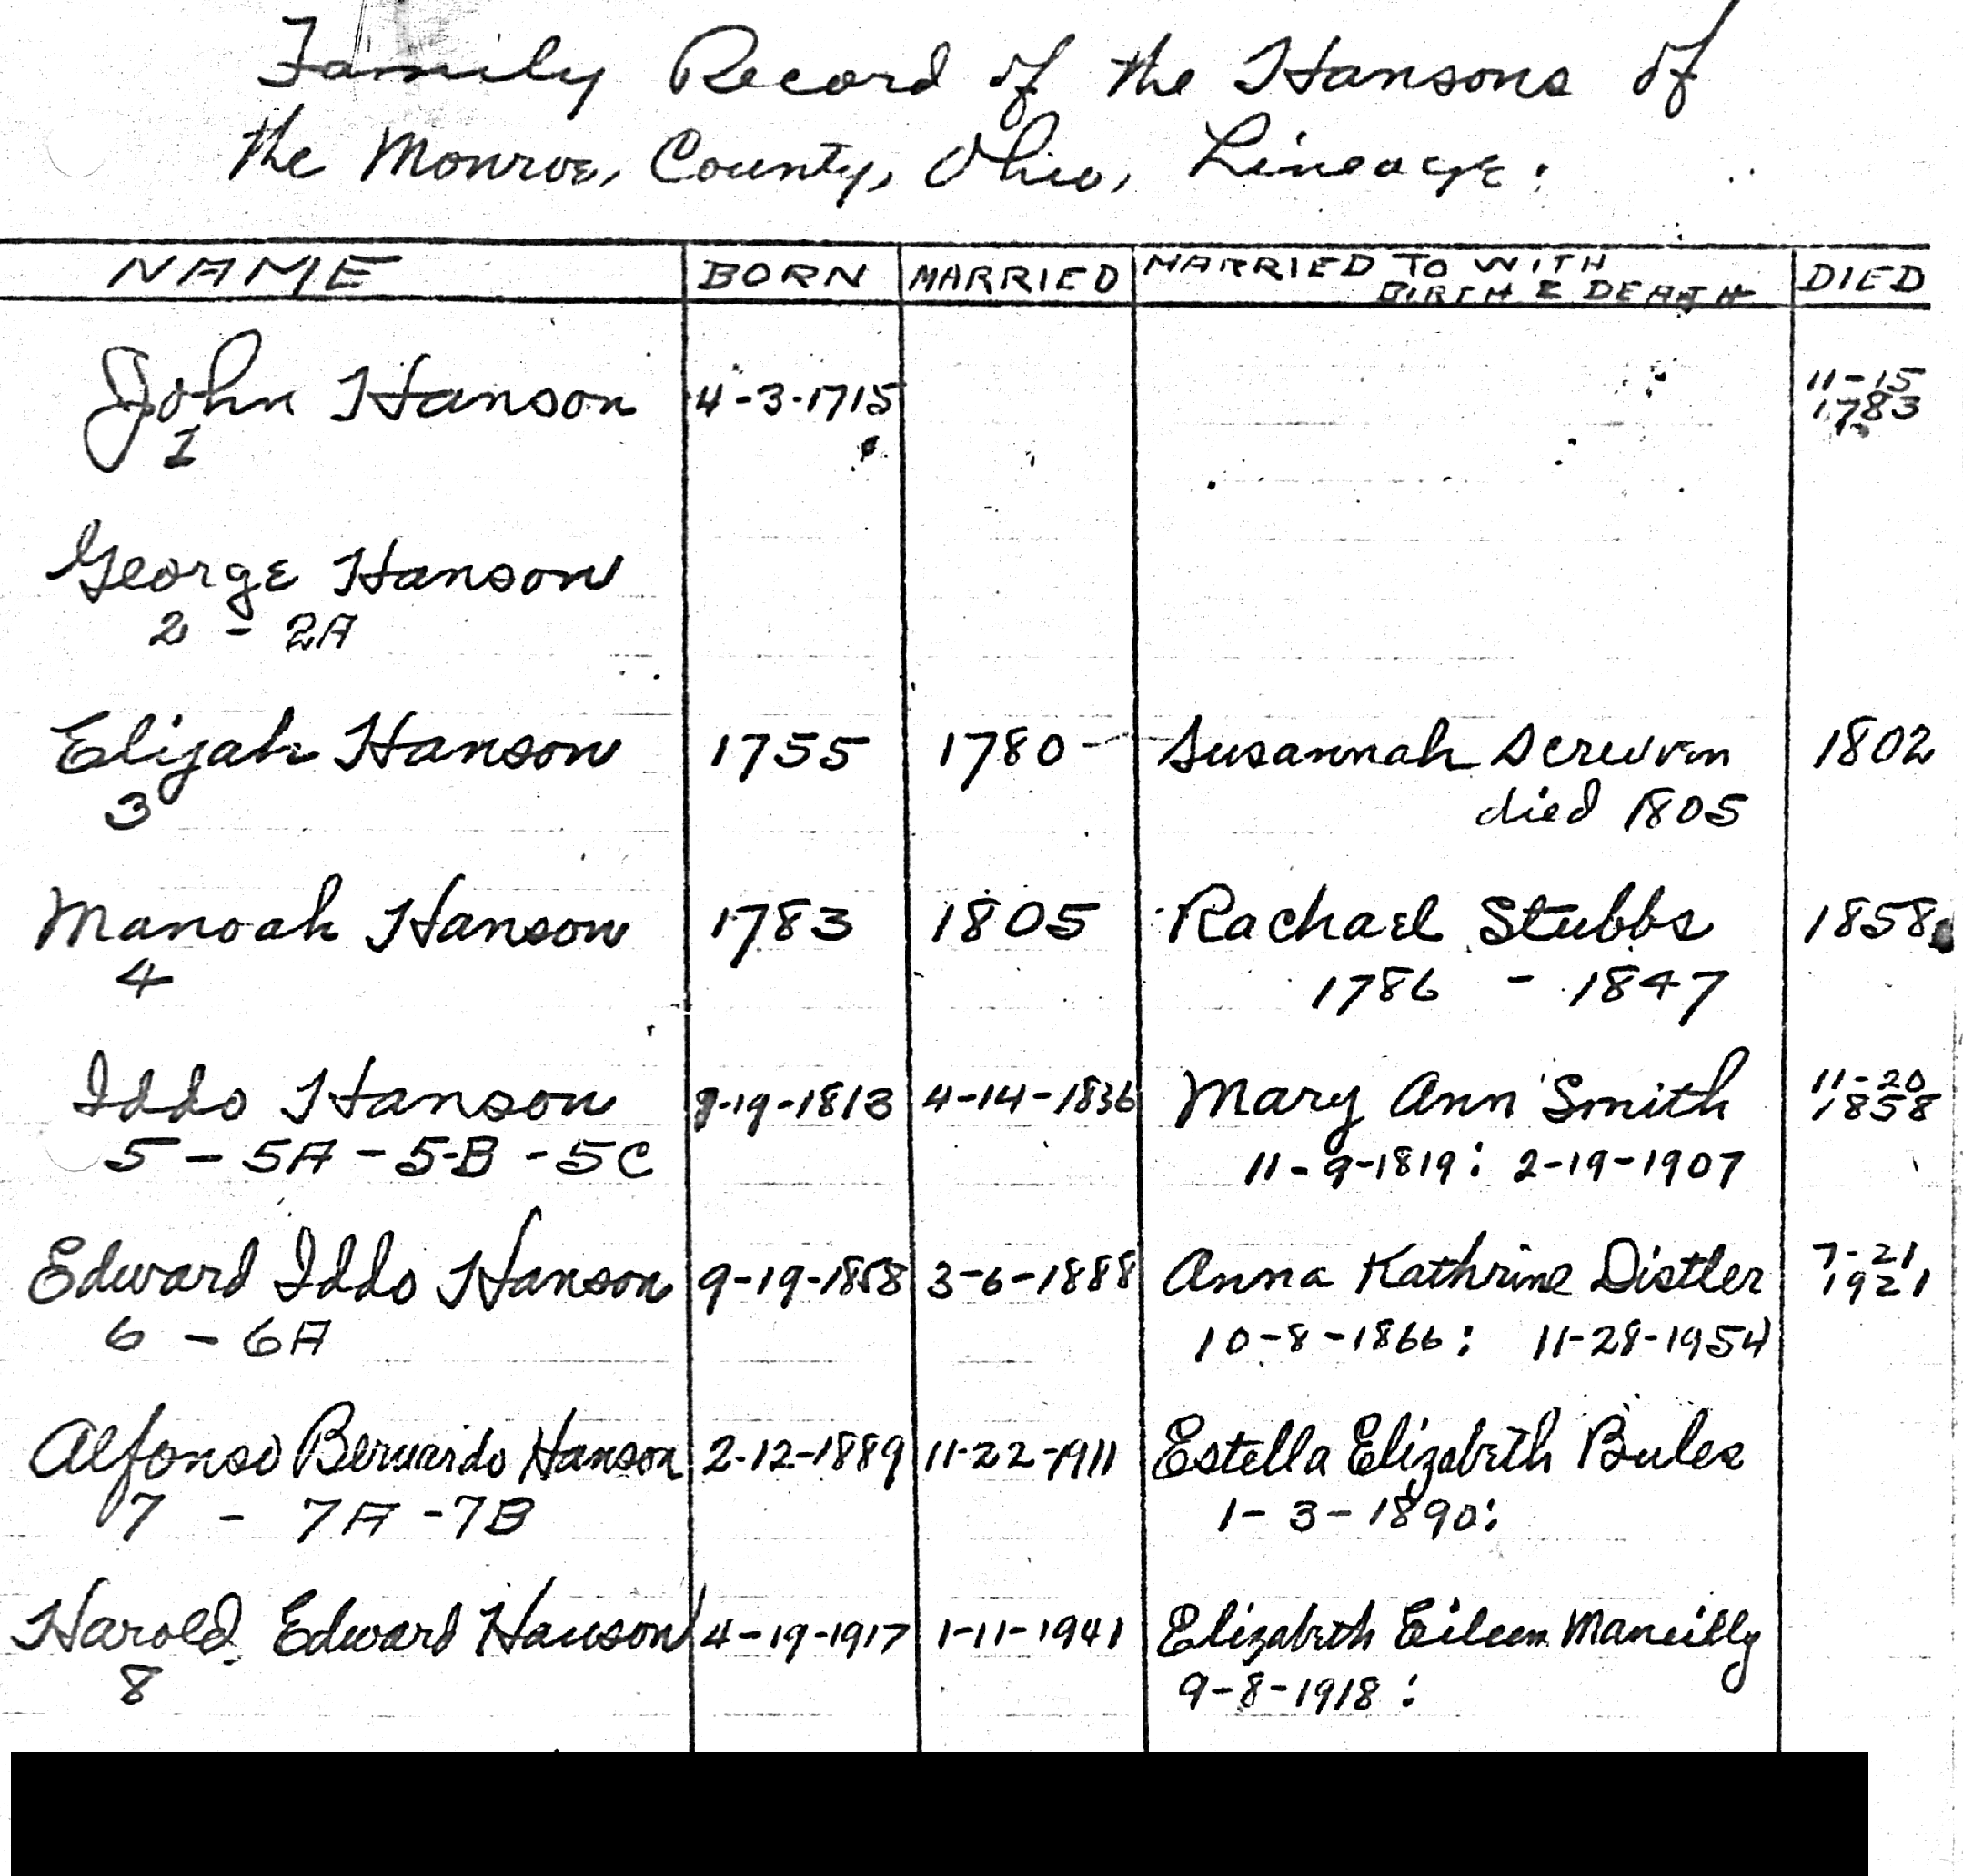 Family Record of the Hansons of
the Monroe, County, Ohio, Lineage:
NAME BORN MARRIED MARRIED TO WITH BIRTH & DEATH DIED
John Hanson 4-3-1715 11-15 1783
1
George Hanson
2 - 2A
Elijah Hanson 1755 1780 - Susannah 1802
3 died 1805
Manoah Hanson 1783 1805 Rachael Stubbs 1858
4 1786 - 1847
Iddo Hanson -19-1813 4-14-1836 Mary Ann Smith 11-20 1858
5 - 5A - 5-B - 5C 11-9-1819: 2-19-1907
Edward Iddo Hanson 9-19-1858 3-6-1888 Anna Kathrine Distler 7-21 1921
6 - 6A 10-8-1866: 11-28-1954
Alfonso Bernardo Hanson 2-12-1889 11-22-1911 Estella Elizabeth
7 - 7A - 7B 1-3-1890:
Harold Edward Hanson 4-19-1917 1-11-1941 Elizabeth Eileen
8 9-8-1918: